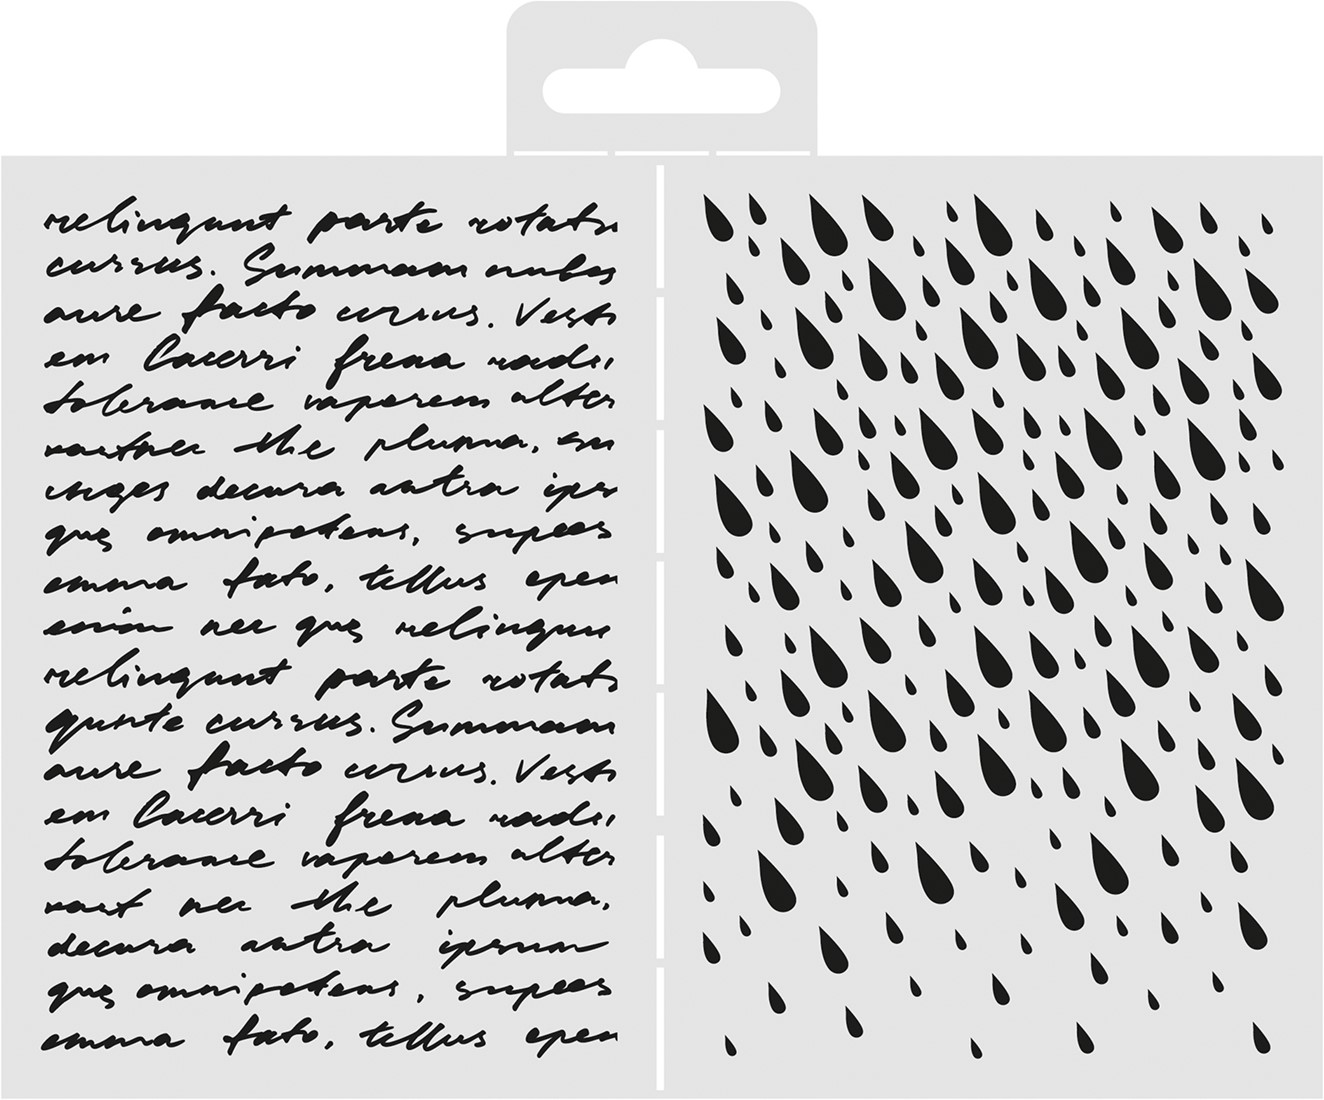 relinqunt parte rotat
cursus. Summam nubes
aure facto cursus. Vest
em Cacerri frena
tolerance vaporem alter
the pluma,
decura antra ips
que omnipotens, supees
emma fato, tellus epen
enim nec que relinqun
relinqunt parte rotat
cursus. Summam
aure facto cursus. Vest
em Cacerri frena
tolerance vaporem alter
nec the pluma,
decura antra ipsum
que omnipotens, supees
emma fato, tellus epen